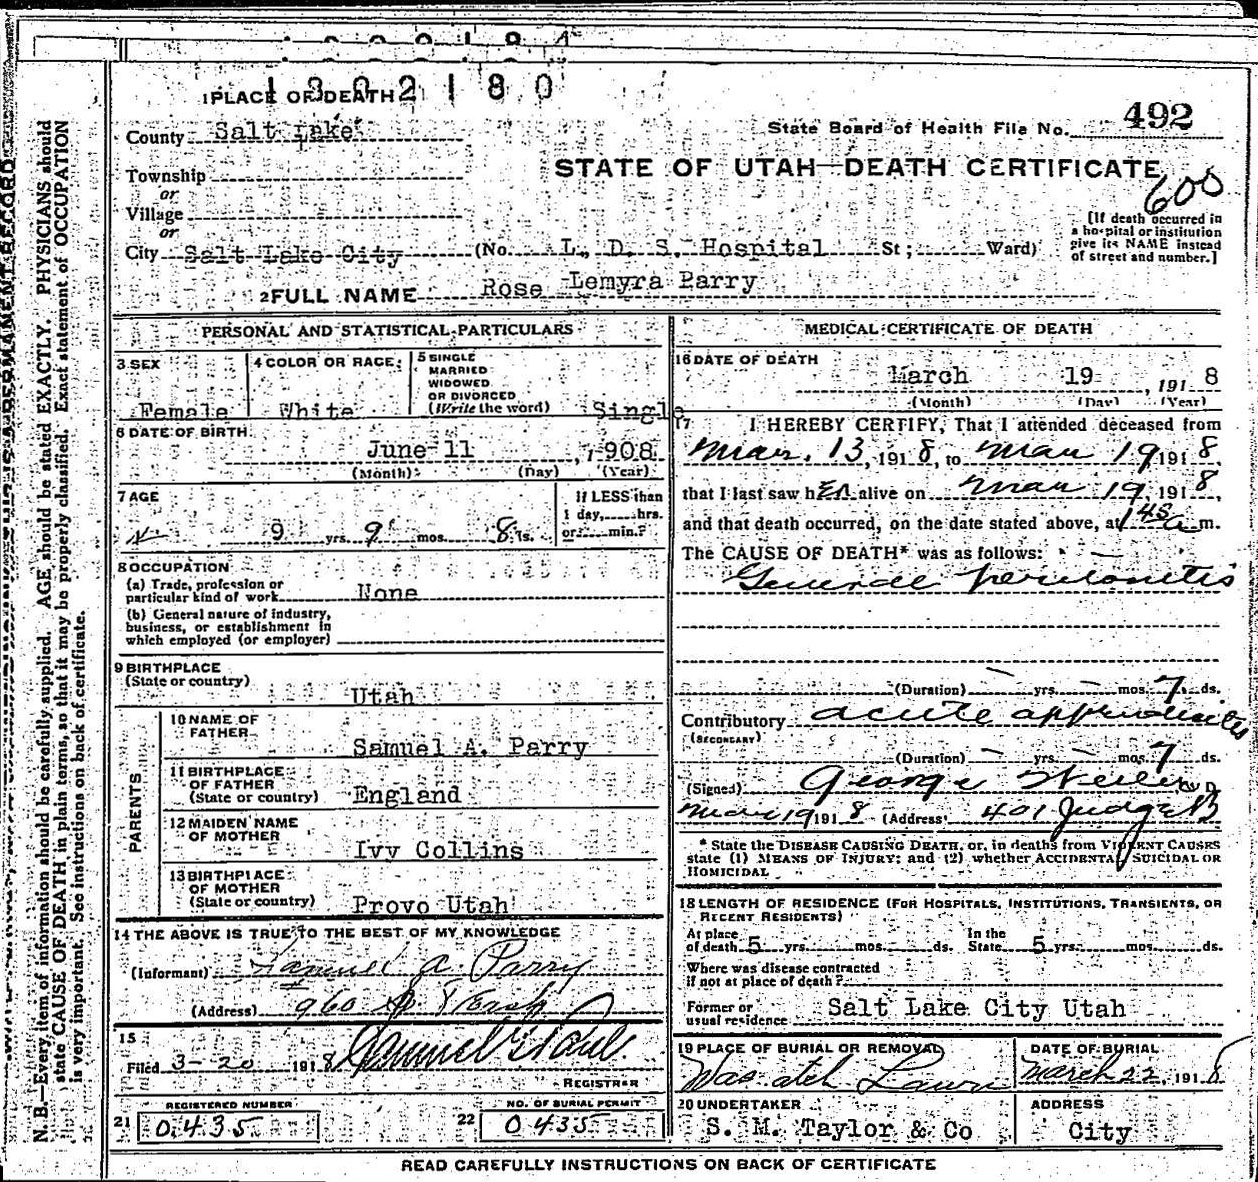 1302180
1 PLACE OF DEATH
County Salt Lake
State Board of Health File No. 492
STATE OF UTAH—DEATH CERTIFICATE
600
Township
or
Village
or
City Salt Lake City (No. L. D. S. Hospital St; Ward)
[If death occurred in
a hospital or institution
give its NAME instead
of street and number.]
2 FULL NAME Rose Lemyra Parry
PERSONAL AND STATISTICAL PARTICULARS
3 SEX Female
4 COLOR OR RACE: White
5 SINGLE
MARRIED
WIDOWED
OR DIVORCED
(Write the word) Single
6 DATE OF BIRTH
June 11, 1908
(Month) (Day) (Year)
7 AGE
9 yrs. 9 mos. 8 ds.
If LESS than
1 day, hrs.
or min.?
8 OCCUPATION
(a) Trade, profession or
particular kind of work None
(b) General nature of industry,
business, or establishment in
which employed (or employer)
9 BIRTHPLACE
(State or country) Utah
PARENTS
10 NAME OF
FATHER Samuel A. Parry
11 BIRTHPLACE
OF FATHER
(State or country) England
12 MAIDEN NAME
OF MOTHER Ivy Collins
13 BIRTHPLACE
OF MOTHER
(State or country) Provo Utah
14 THE ABOVE IS TRUE TO THE BEST OF MY KNOWLEDGE
(Informant) Samuel A Parry
(Address) 960
15
Filed 3-20 1918
REGISTRAR
REGISTERED NUMBER
21 0435
NO. OF BURIAL PERMIT
22 0435
MEDICAL CERTIFICATE OF DEATH
16 DATE OF DEATH
March 19, 1918
(Month) (Day) (Year)
17 I HEREBY CERTIFY, That I attended deceased from
Mar. 13, 1918, to Mar 19 1918,
that I last saw her alive on Mar 19 1918,
and that death occurred, on the date stated above, at 1 45 a m.
The CAUSE OF DEATH* was as follows:
General peritonitis
(Duration) yrs. mos. 7 ds.
Contributory acute appendicitis
(SECONDARY)
(Duration) yrs. mos. 7 ds.
(Signed) George
Mar 19 1918 (Address) 401 Judge B
* State the DISEASE CAUSING DEATH, or, in deaths from VIOLENT CAUSES
state (1) MEANS OF INJURY; and (2) whether ACCIDENTAL, SUICIDAL OR
HOMICIDAL
18 LENGTH OF RESIDENCE (FOR HOSPITALS, INSTITUTIONS, TRANSIENTS, OR
RECENT RESIDENTS)
At place
of death 5 yrs. mos. ds.
In the
State 5 yrs. mos. ds.
Where was disease contracted
if not at place of death?
Former or
usual residence Salt Lake City Utah
19 PLACE OF BURIAL OR REMOVAL
Wasatch Lawn
DATE OF BURIAL
March 22, 1918
20 UNDERTAKER
S. M. Taylor & Co
ADDRESS
City
READ CAREFULLY INSTRUCTIONS ON BACK OF CERTIFICATE
N. B.—Every item of information should be carefully supplied. AGE should be stated EXACTLY. PHYSICIANS should
state CAUSE OF DEATH in plain terms, so that it may be properly classified. Exact statement of OCCUPATION
is very important. See instructions on back of certificate.